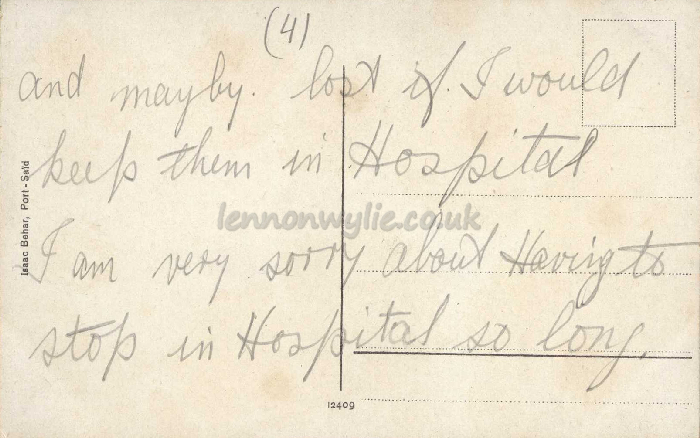 (4)
and mayby. lost if. I would
keep them in Hospital
I am very sorry about Having to
stop in Hospital so long.
Isaac Behar, Port-Saïd
lennonwylie.co.uk
12409